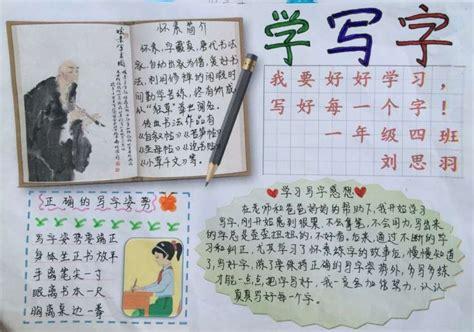 学写字
怀素简介
怀素,字藏真,唐代书法
家,自幼出家为僧,爱好书
法,利用修禅的闲暇时
间勤学苦练,终自研成
以“狂草”著世闻名。
传世书法作品有
《自叙帖》《苦笋帖》
《圣母帖》《论书帖》
《小草千文》等。
我要好好学习,
写好每一个字!
一年级四班
刘思羽
正确的写字姿势
写字姿势要端正
身体坐正书放平
手离笔尖一寸
眼离书本一尺
胸离桌边一拳
学习写字感想
在老师和爸爸妈妈的帮助下,我开始练习
写字,刚开始感到很累,不但拿笔,不会用力,写出来
的字总是歪歪扭扭的,不好看。后来,通过不断的学
习和纠正,尤其学习了怀素练字的故事后,慢慢知道
了,写好字,除了要保持正确的写字姿势外,多写多练
才能一点点把字写好,我一定会加倍努力,认认
真真写好每个字。